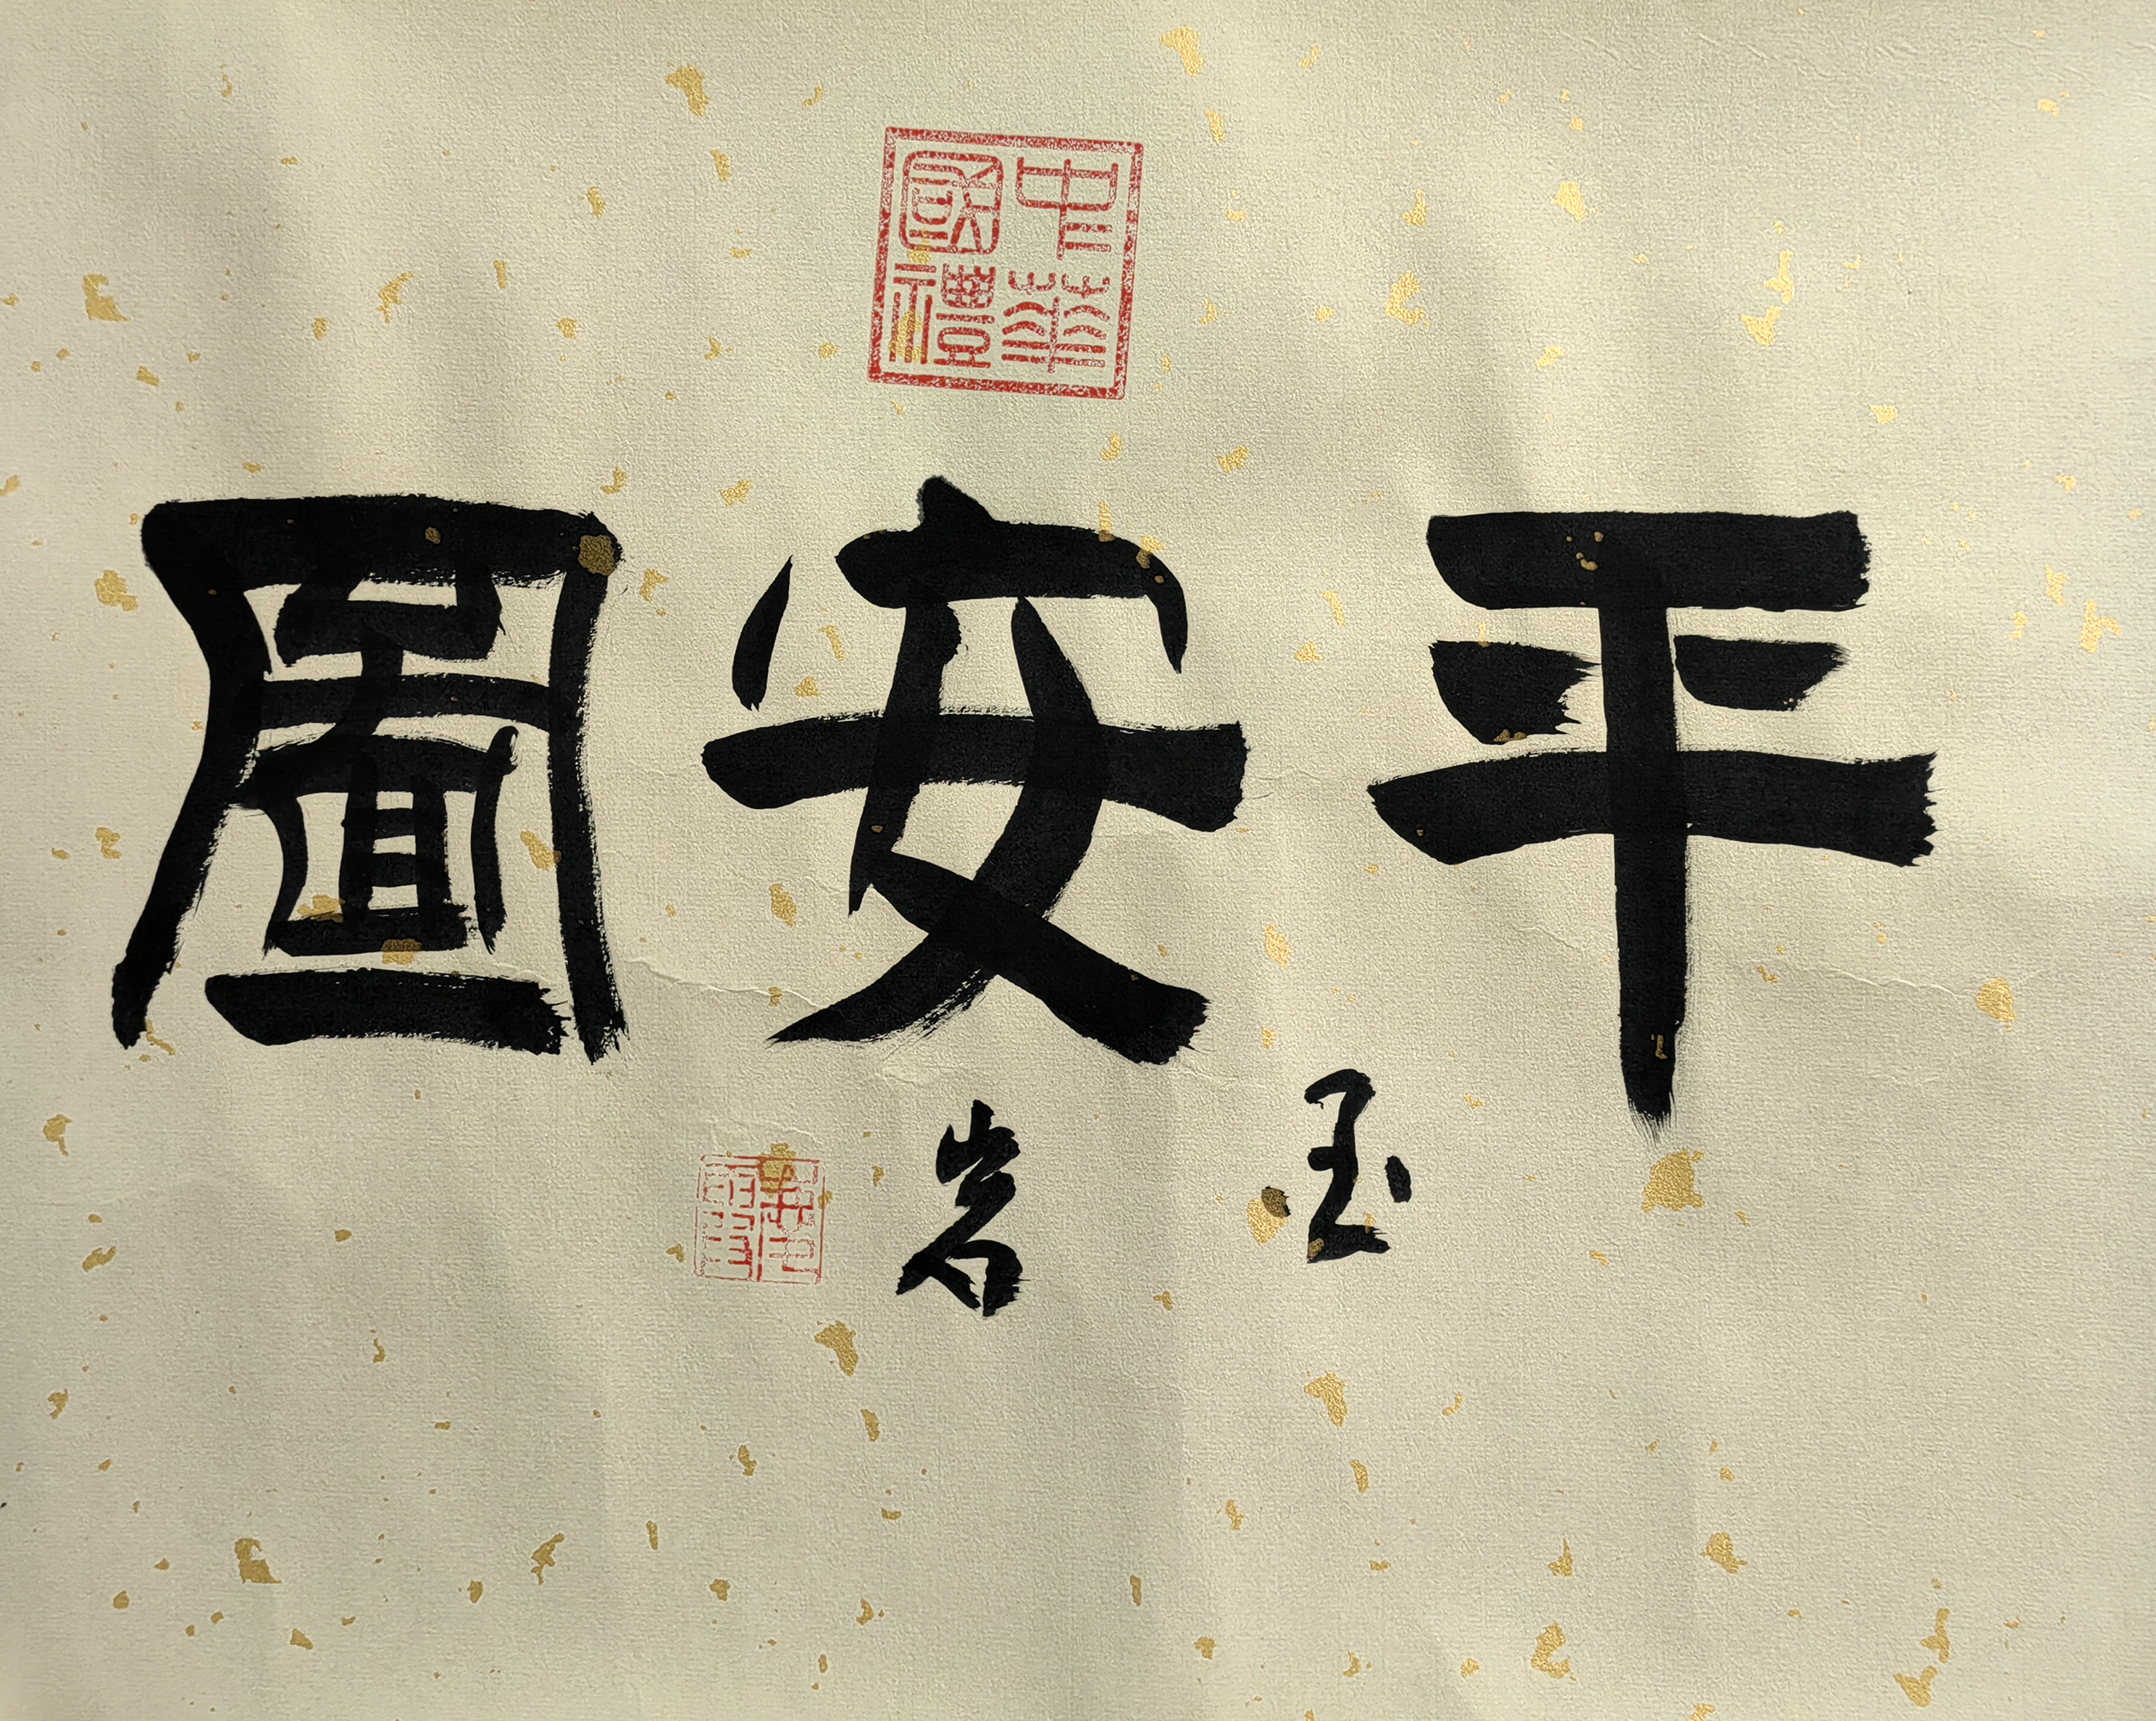 中華
國禮
平安圖
玉岩